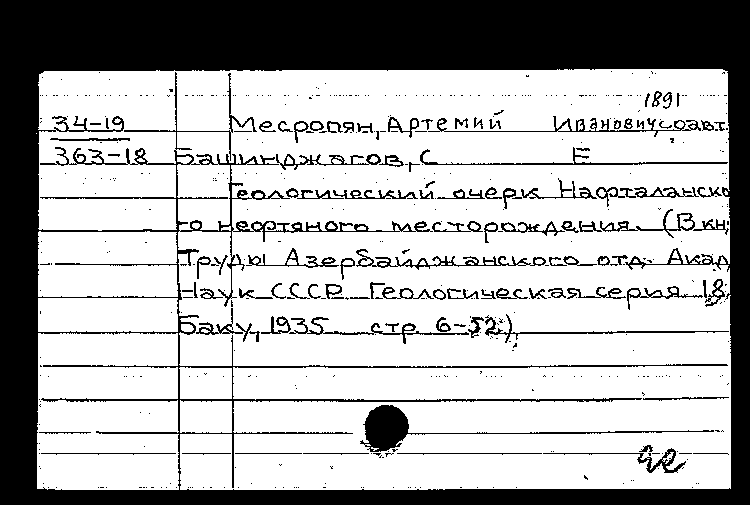 1891
34-19 Месропян, Артемий Иванович, соавт.
363-18 Башинджагов, С Е
Геологический очерк Нафталанско
го нефтяного месторождения. (В кн:
Труды Азербайджанского отд. Акад
Наук СССР Геологическая серия 18,
Баку, 1935 стр 6-52)